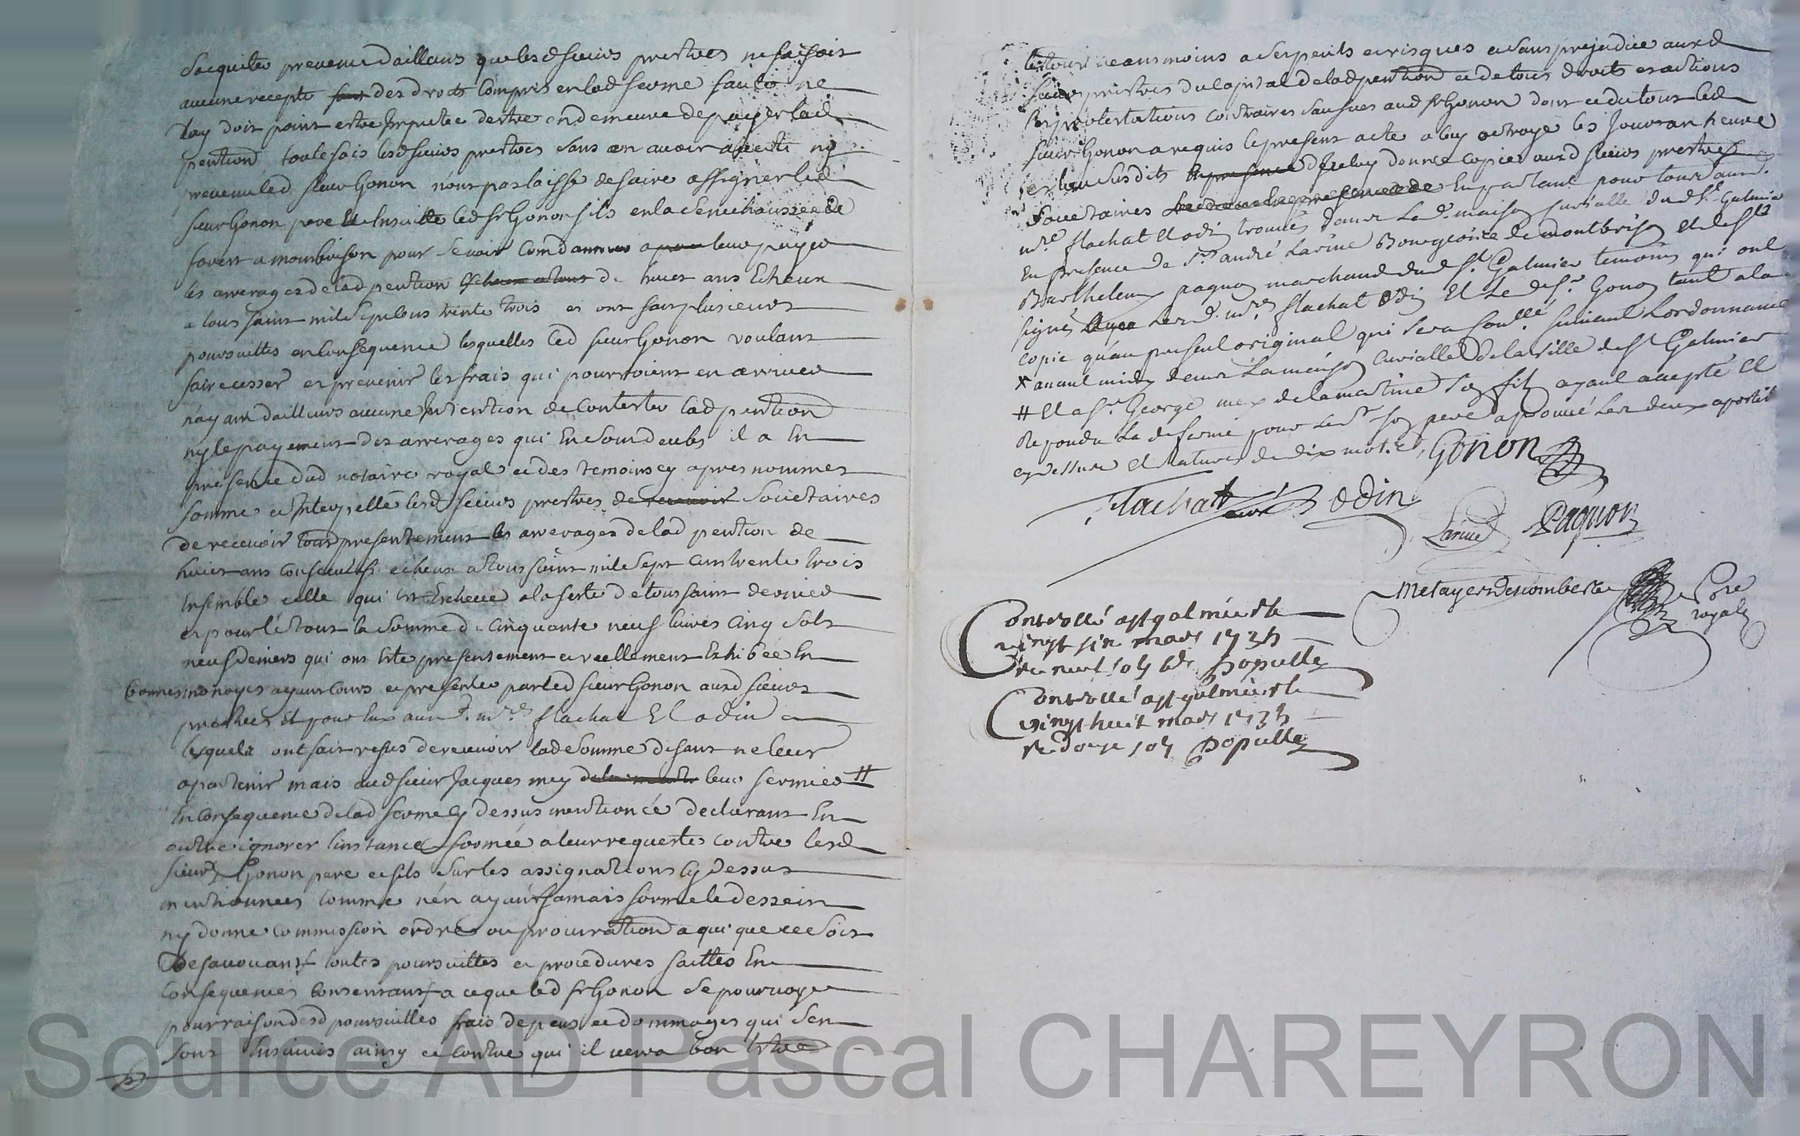 sacquiter prevenu dailleurs que lesd sieurs prestres ne faisoit
aucune recepte des droits compris en lad ferme faute ne
luy doit point estre imputée destre en demeure de payer lad
pention toutefois lesd sieurs prestres sans en avoir averti ny
prevenu led sieur Gonon n'ont pas laisse de faire assigner led
sieur Gonon pere et ensuitte led sr Gonon fils en la senechaussée de
forest a montbrison pour se voir condamner a leur payer
les arrerages de lad pention de huict ans escheux
a tous saint mil sept cens trente trois et ont fait plusieurs
poursuittes en consequence lesquelles led sieur Gonon voulant
faire cesser et prevenir les frais qui pourroient en arriver
nayant dailleurs aucune intention de contester lad pention
ny le payement des arrerages qui en sont deubs il a en
presence dud notaire royal et des temoins cy apres nommes
sommé et interpellé lesd sieurs prestres societaires
de recevoir tout presentement les arrerages de lad pention de
huict ans consecutifs echeux a tous saint mile sept cens trente trois
ensemble celle qui est escheue a la feste de toussaint dernier
et pour le tout la somme de cinquante neuf livres cinq sols
neuf deniers qui ont esté presentement et reellement exhibée en
bonnes monoyes ayant cours et presentée par led sieur Gonon aud sieurs
prestres et pour eux aux d. mre flachat et odin
lesquels ont fait refus de recevoir lade somme disant ne leur
apartenir mais aud sieur Jacques mey leur fermier #
en consequence de lad ferme cy dessus mentionée declarant en
outre ignorer linstance formée a leur requeste contre lesd
sieurs Gonon pere et fils sur les assignations cy dessus
mentionnées comme nen ayant jamais formé le dessein
ny donne commission ordre ou procuration a qui que ce soit
desavouant toutes poursuittes et procedures faittes en
consequences consentant a ce que led sr Gonon se pourvoye
pour raison desd poursuittes frais depens et dommages qui sen
sont ensuivis ainsy et contre qui il verra bon estre
le tout neansmoins a ses perils et risques et sans prejudice auxd
sieurs prestres du capital de lad pention et de tous droits et actions
et protestations contraires sauves aud sr Gonon dont et du tout led
sieur Gonon a requis le present acte a luy octroyé les jour an heure
et lieu susdits de luy donné copie auxd sieurs prestres
societaires en parlant pour tous auxd.
mre flachat et odin trouvés dans le d. maison curialle dud st. Galmier
En presence de sr. andré Larine Bourgeois de montbrison et de sr
Barthelemy pagnon marchand dud st Galmier temoins qui ont
signé Lesd. mres flachat odin Et Le dsr. Gonon tant a la
copie qu'au present original qui sera Conllé suivant Lordonnance
* avant midy dans La maison Curialle de la ville de st Galmier
# Et a sr. George mey de lamartine son fils ayant accepté Et
Repondu La de ferme pour Led sr son pere aprouvé Les deux apostis
cy dessus et Ratures de dix mots. Gonon
Flachat curé Odin
Larine Pagnon
Metayer Descombes Nre
royal
Controllé a st galmier le
vingt six mars 1735
Reçu neuf sols 6ds Populle
Controllé a st galmier le
vingt huit mars 1735
Re douze sols Populle
Source AD Pascal CHAREYRON